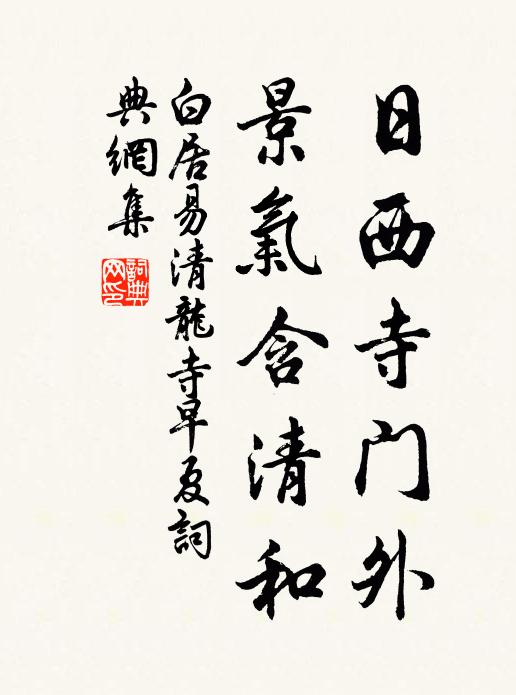 日西寺门外
景氣含清和
白居易清龍寺早夏詞
典網集
詞典
网印